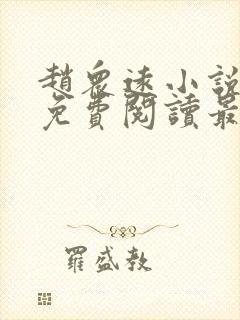 趙眾遠小說
免費閱讀最
羅盛教